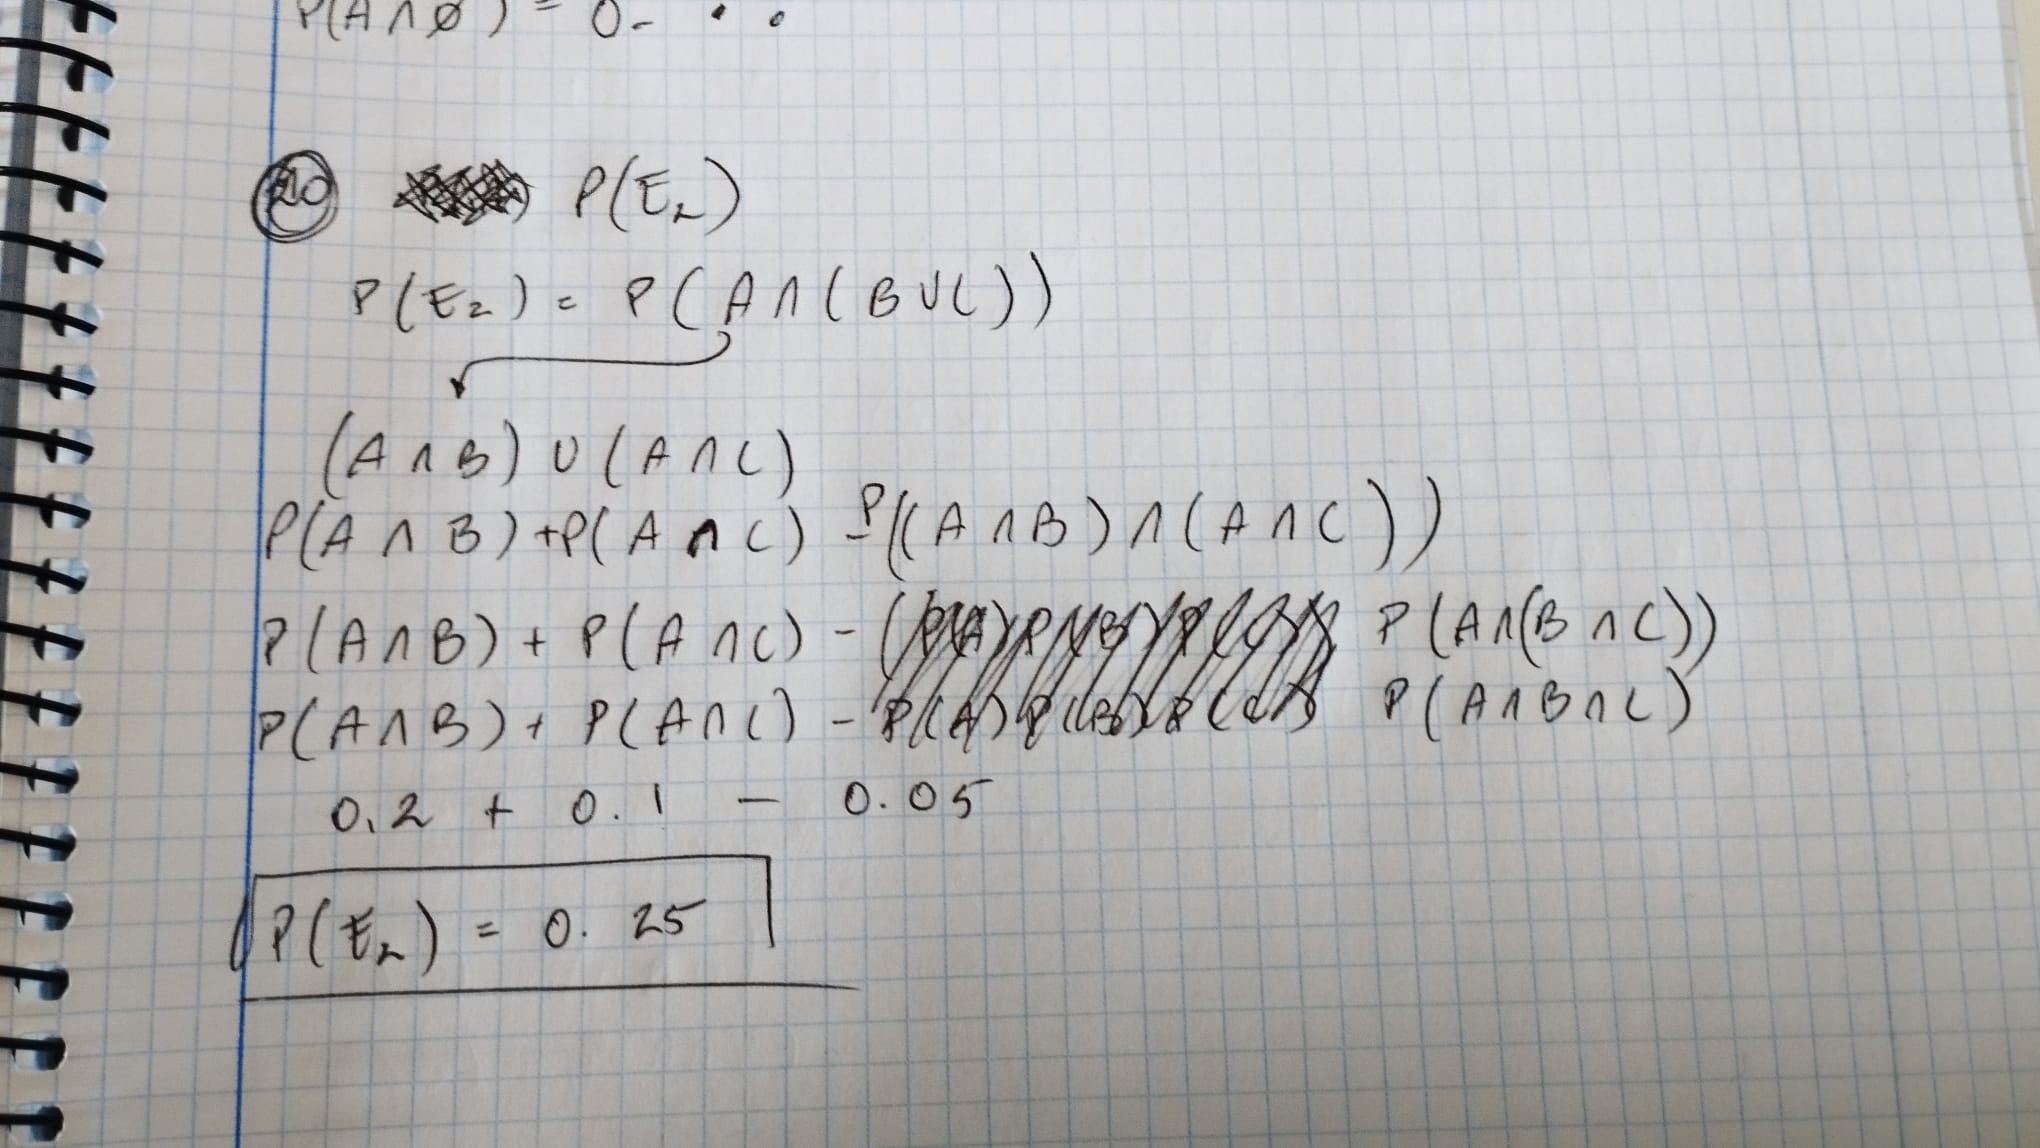 P(A ∩ Ø) = 0
20 P(E₂)
P(E₂) = P(A ∩ (B ∪ C))
(A ∩ B) ∪ (A ∩ C)
P(A ∩ B) + P(A ∩ C) - P((A ∩ B) ∩ (A ∩ C))
P(A ∩ B) + P(A ∩ C) - P(A ∩ (B ∩ C))
P(A ∩ B) + P(A ∩ C) - P(A ∩ B ∩ C)
0.2 + 0.1 - 0.05
P(E₂) = 0.25